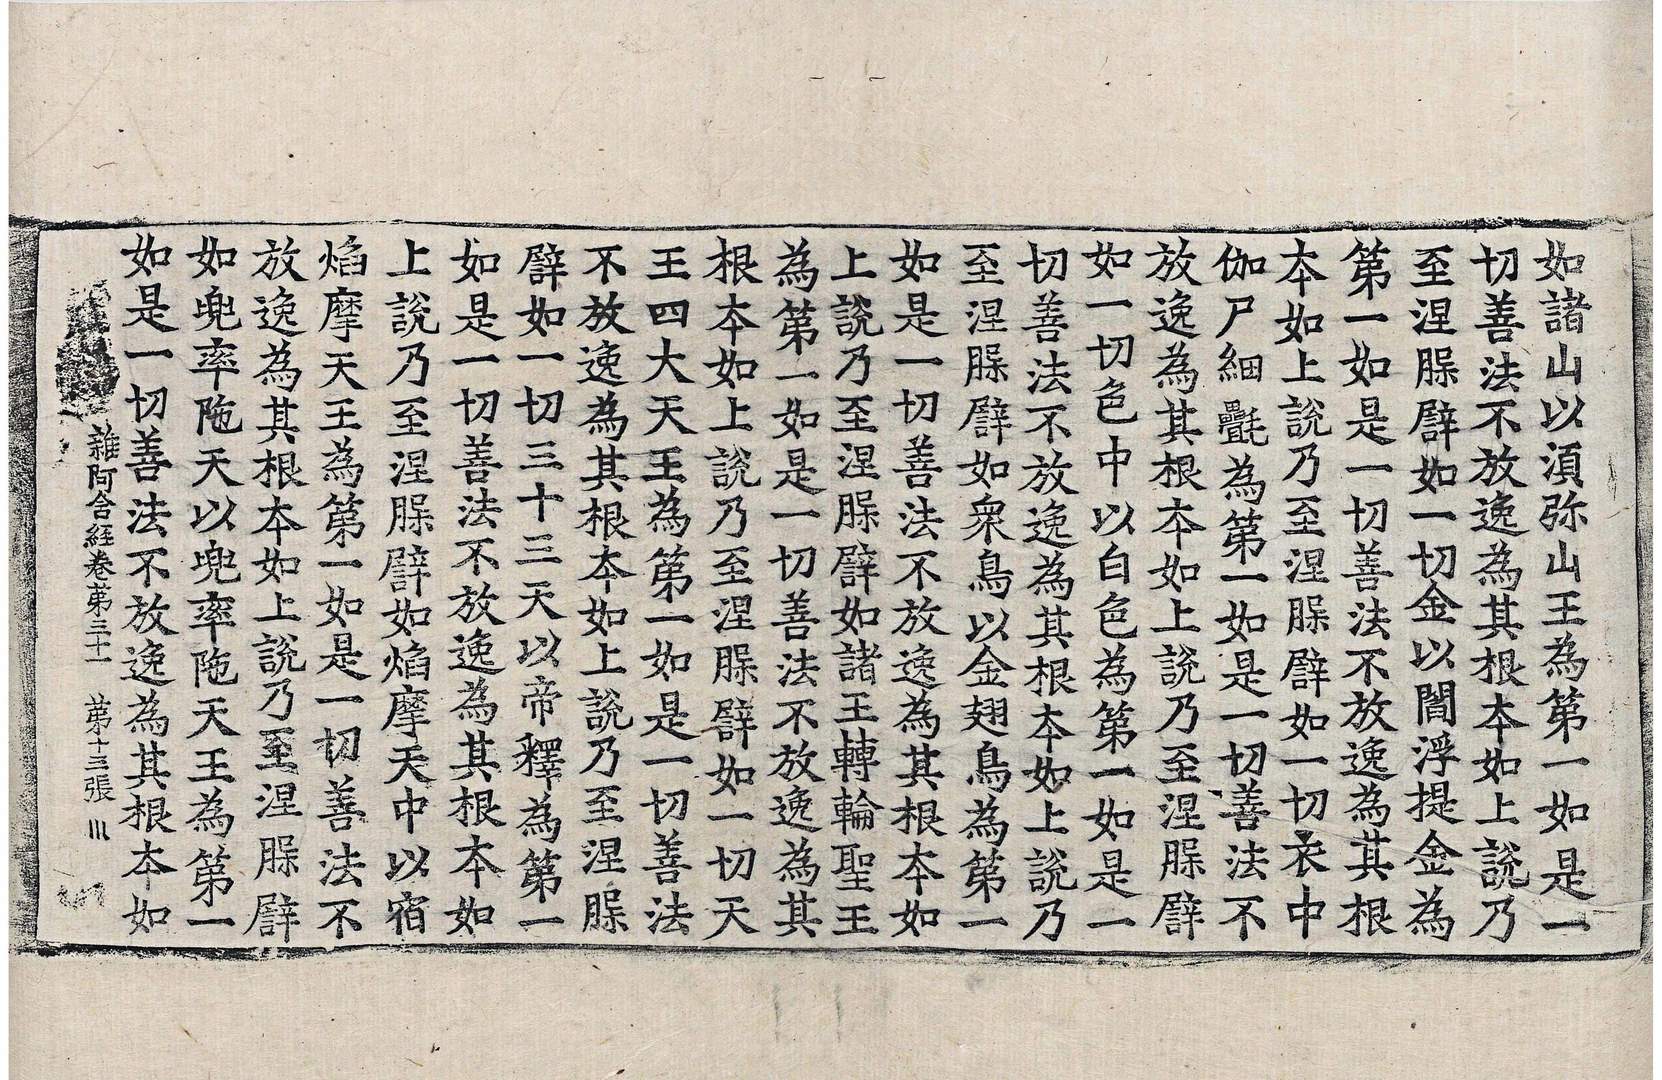 如諸山以湏弥山王為第一如是一
切善法不放逸為其根本如上說乃
至涅槃譬如一切金以閻浮提金為
第一如是一切善法不放逸為其根
本如上說乃至涅槃譬如一切衣中
伽尸細氎為第一如是一切善法不
放逸為其根本如上說乃至涅槃譬
如一切色中以白色為第一如是一
切善法不放逸為其根本如上說乃
至涅槃譬如衆鳥以金翅鳥為第一
如是一切善法不放逸為其根本如
上說乃至涅槃譬如諸王轉輪聖王
為第一如是一切善法不放逸為其
根本如上說乃至涅槃譬如一切天
王四大天王為第一如是一切善法
不放逸為其根本如上說乃至涅槃
譬如一切三十三天以帝釋為第一
如是一切善法不放逸為其根本如
上說乃至涅槃譬如焰摩天中以宿
焰摩天王為第一如是一切善法不
放逸為其根本如上說乃至涅槃譬
如兜率陁天以兜率陁天王為第一
如是一切善法不放逸為其根本如
雜阿含經卷第三十一 第十三張